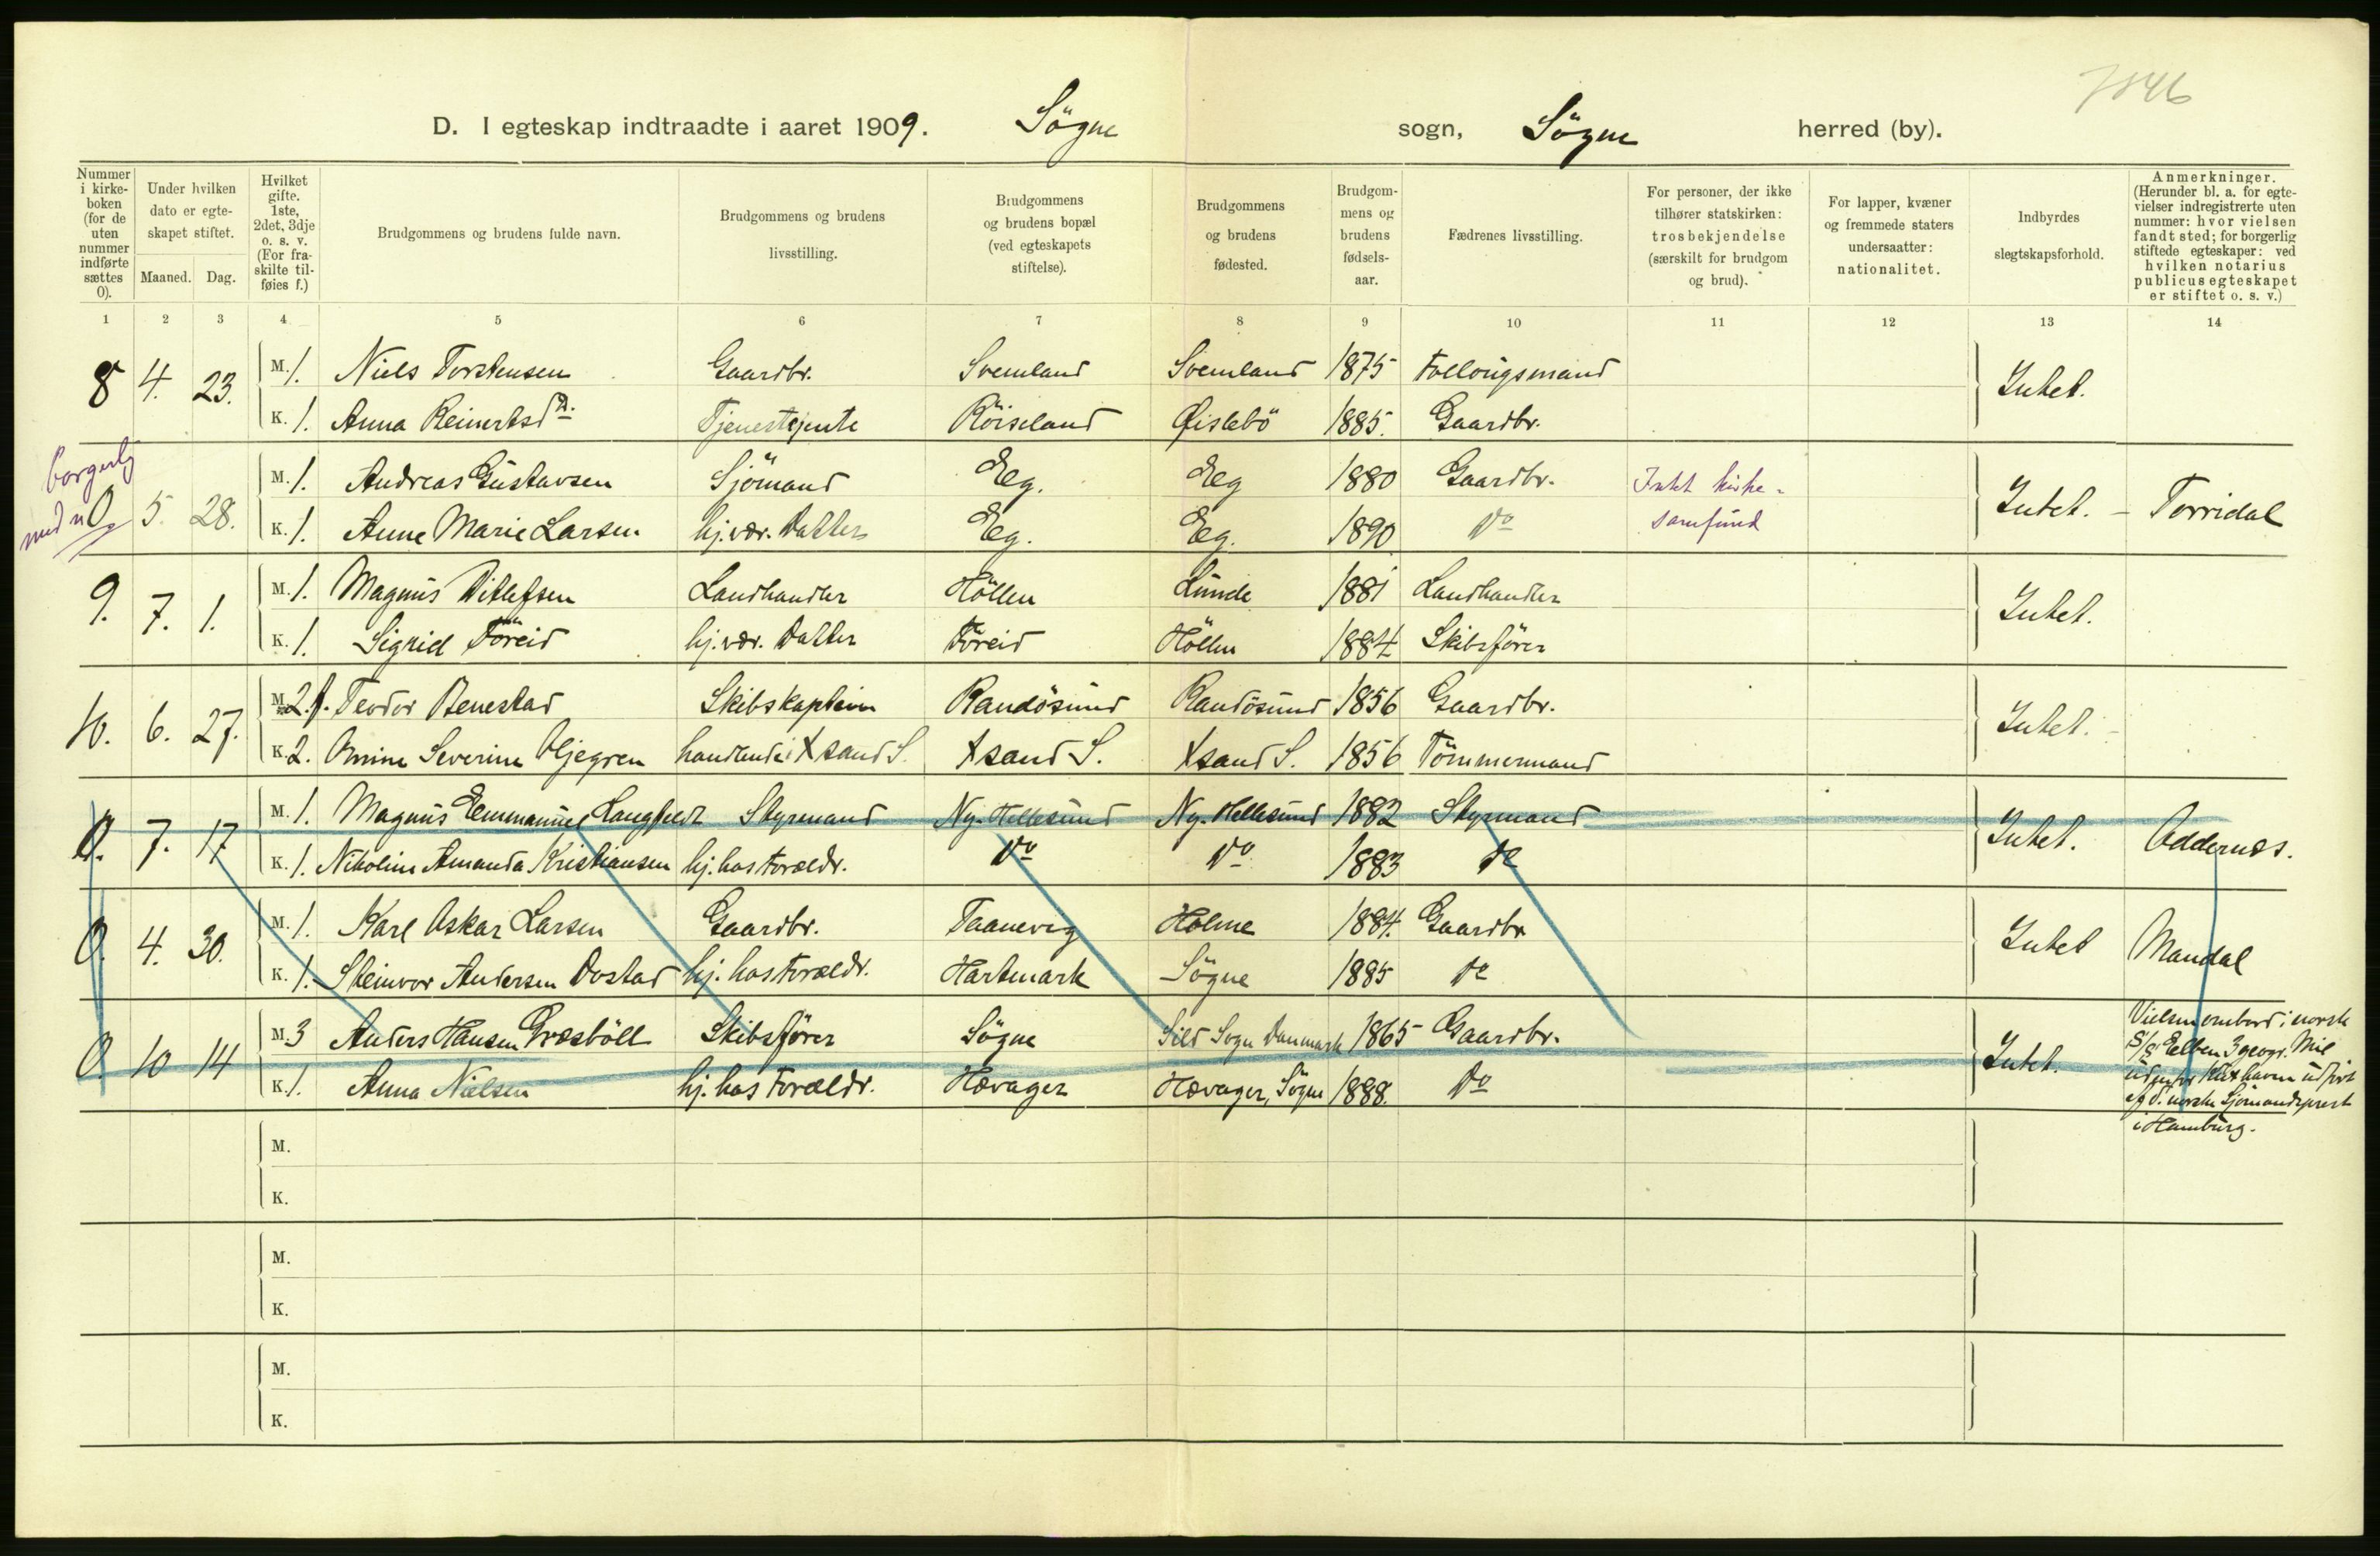 7846
D. I egteskap indtraadte i aaret 1909. Sögne sogn, Sögne herred (by).
Nummer i kirkeboken (for de uten nummer indførte sættes 0).
Under hvilken dato er egteskapet stiftet.
Maaned. Dag.
Hvilket gifte. 1ste, 2det, 3dje o. s. v. (For fraskilte tilføies f.)
Brudgommens og brudens fulde navn.
Brudgommens og brudens livsstilling.
Brudgommens og brudens bopæl (ved egteskapets stiftelse).
Brudgommens og brudens fødested.
Brudgommens og brudens fødselsaar.
Fædrenes livsstilling.
For personer, der ikke tilhører statskirken: trosbekjendelse (særskilt for brudgom og brud).
For lapper, kvæner og fremmede staters undersaatter: nationalitet.
Indbyrdes slegtskapsforhold.
Anmerkninger. (Herunder bl. a. for egtevielser indregistrerte uten nummer: hvor vielsen fandt sted; for borgerlig stiftede egteskaper: ved hvilken notarius publicus egteskapet er stiftet o. s. v.)
1 2 3 4 5 6 7 8 9 10 11 12 13 14
8 4. 23. M. 1. Niels Torstensen Gaardbr. Svemland Svemland 1875 Follougsmand Intet.
K. 1. Anna Reinertsdr. Tjenestejente Röiseland Øislebö 1885. Gaardbr.
borgerlig
0 5. 28. M. 1. Andreas Gustavsen Sjömand Eg. Eg 1880 Gaardbr. Intet kirke- Intet. – Torridal
K. 1. Anne Marie Larsen hj.vær. Datter Eg. Eg. 1890 Do samfund
9. 7. 1. M. 1. Magnus Ditlefsen Landhandler Höllen Lunde 1881 Landhandler Intet.
K. 1. Sigrid Töreid hj.vær. Datter Töreid Höllen 1884 Skibsförer
10. 6. 27. M. 2.f. Teodor Benestad Skibskaptein Randösund Randösund 1856 Gaardbr. Intet.
K. 2. Omine Severine Oljegren handlende Xsand S. Xsand S. Xsand S. 1856 Tömmermand
0. 7. 17 M. 1. Magnus Emmanuel Langfeldt Styrmand Ny-Hellesund Ny-Hellesund 1882 Styrmand Intet. Oddernes.
K. 1. Nikoline Amanda Kristiansen hj. hos Foreldr. Do Do 1883 do
0. 4. 30. M. 1. Karl Oskar Larsen Gaardbr. Taanevig Holme 1884. Gaardbr Intet Mandal
K. 1. Steinvor Andersen Dostad hj. hos Foreldr. Hartmark Sögne 1885 do
0. 10 14 M. 3 Anders Hansen Græsböll Skibsförer Sögne Sild Sogn Danmark 1865 Gaardbr. Intet.
K. 1. Anna Nielsen hj. hos Foreldr. Hævager Hævager, Sögne 1888. Do
Vielsen ombord i norsk
S/S Elben 3 geogr. Mil
udenfor Kuxhaven udfört
af d. norske Sjömandsprest
i Hamburg.
M.
K.
M.
K.
M.
K.